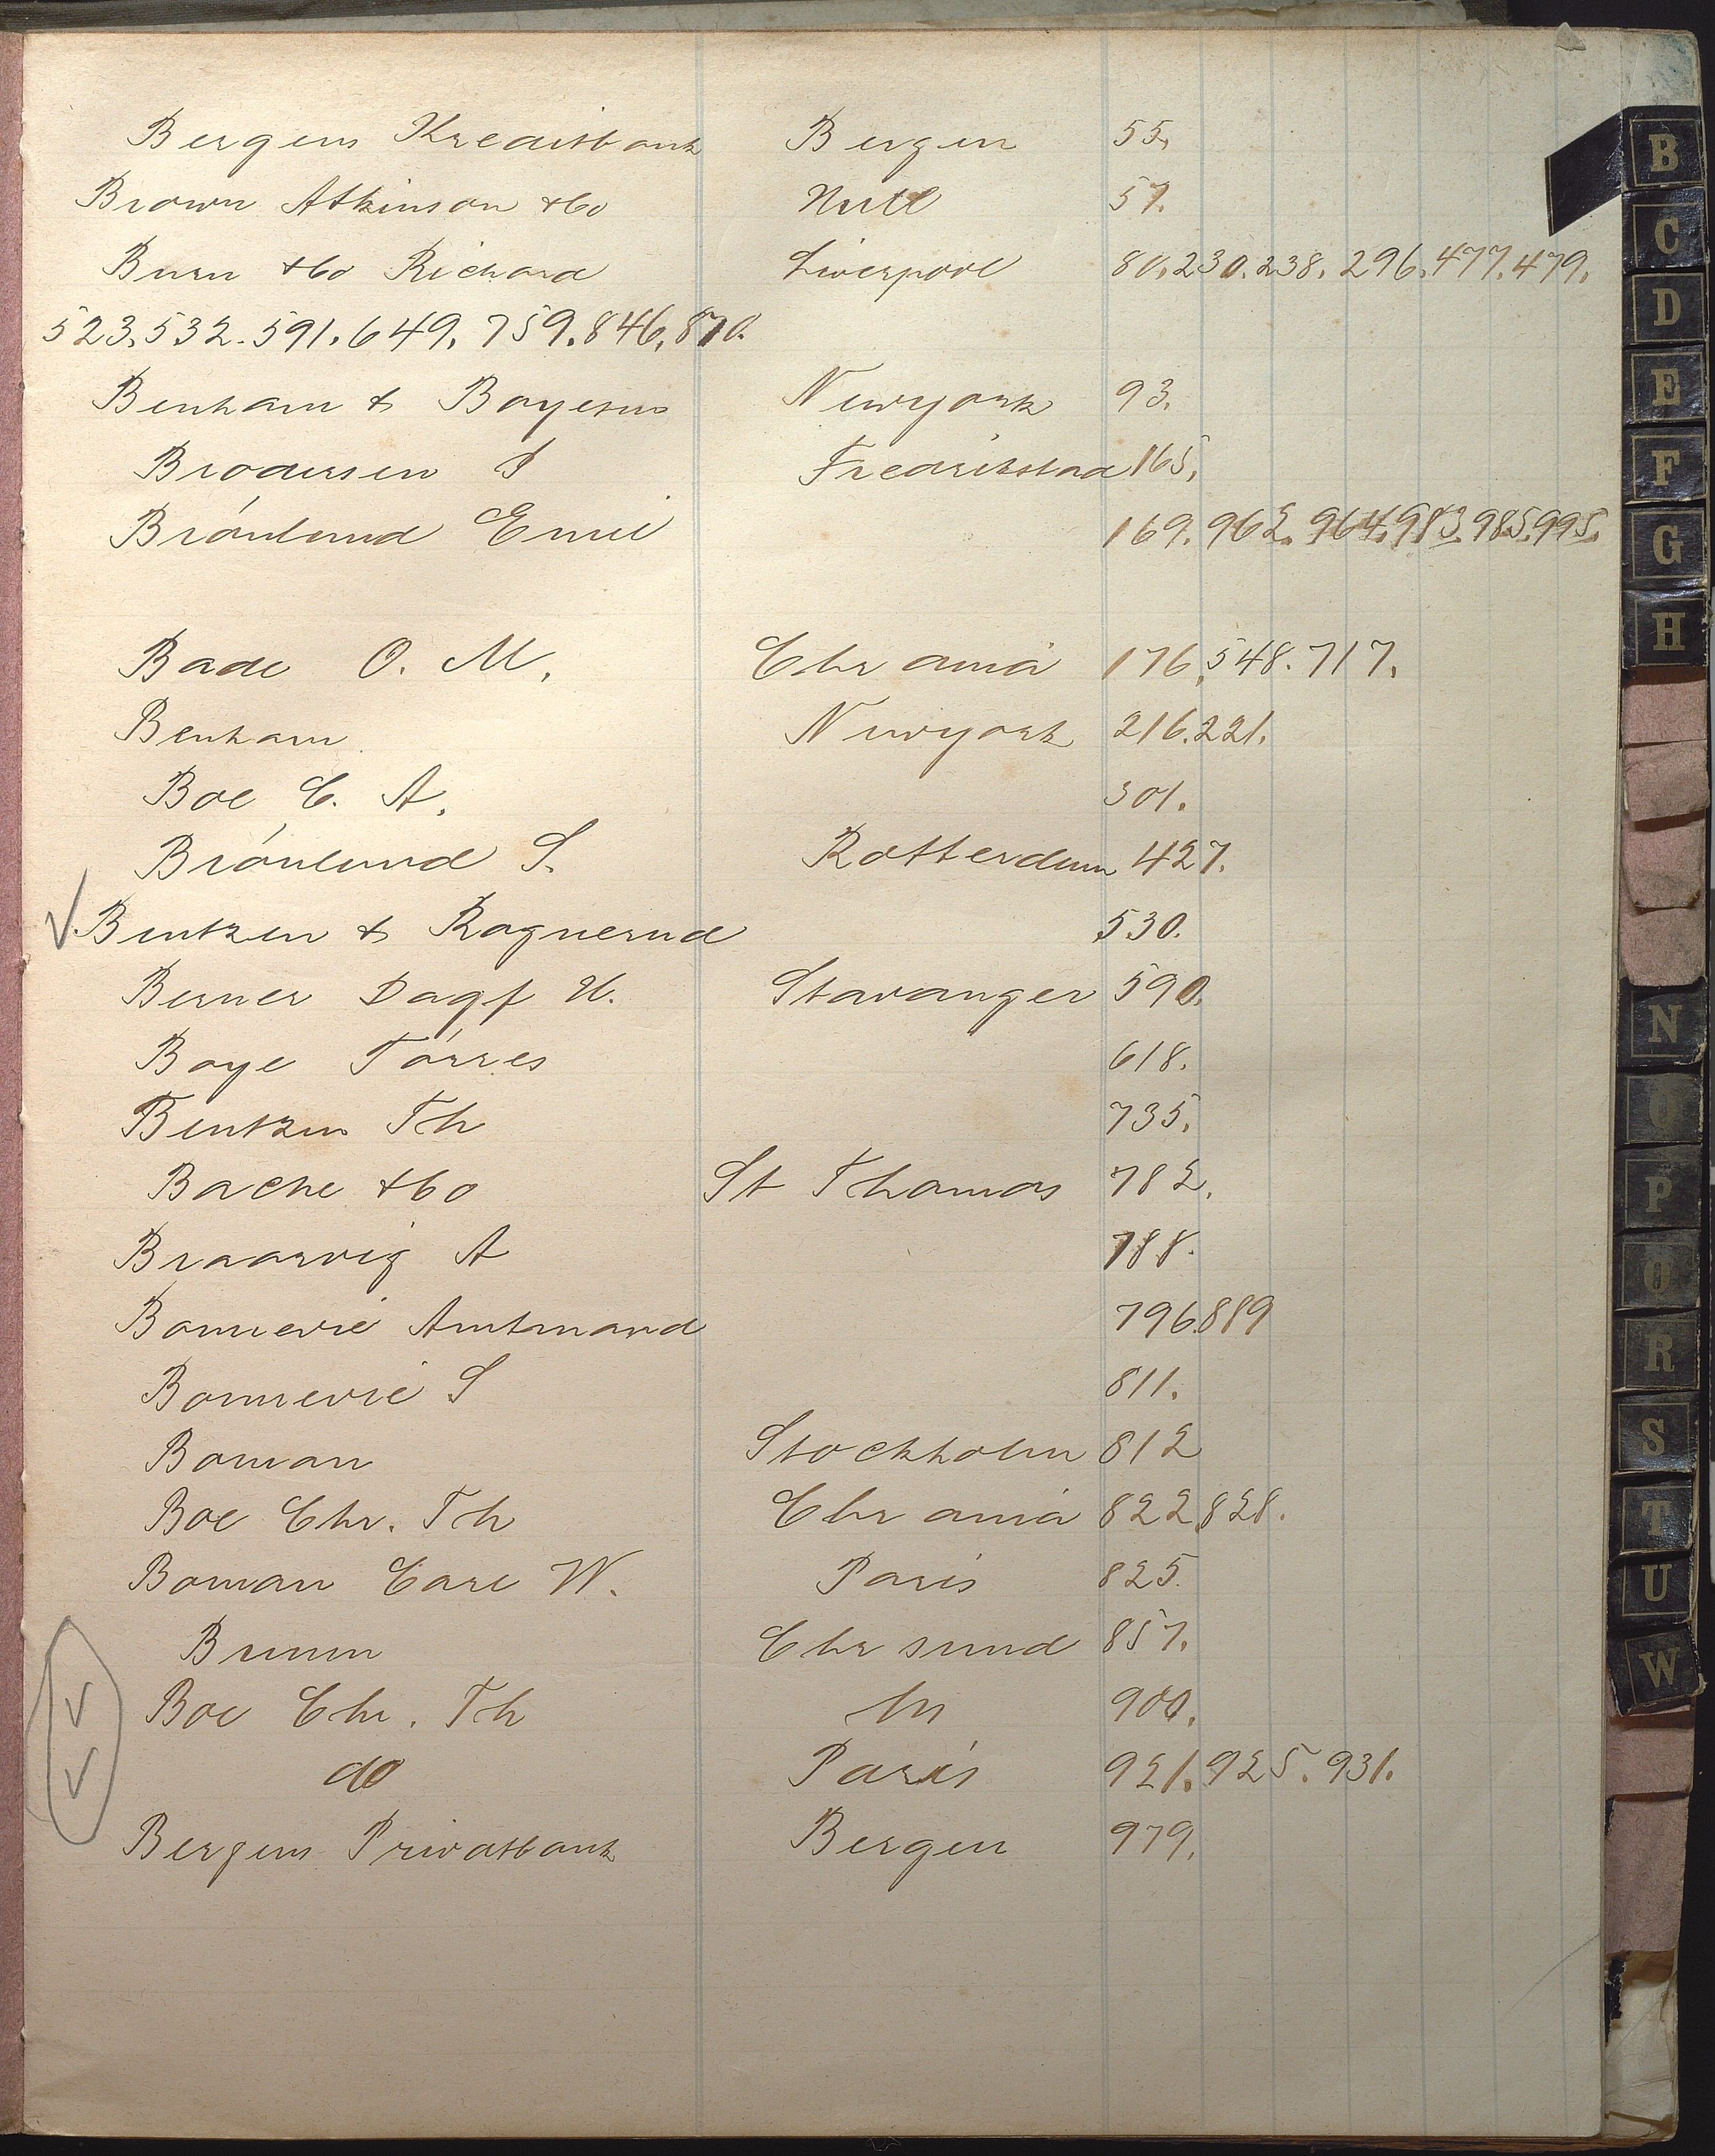 Bergens Kreditbank Bergen 55.
Brown Atkinson & Co Hull 57.
Burn & Co Richard Liverpool 80. 230. 238. 296. 477. 479.
523. 532. 591. 649. 759. 846. 870.
Benham & Boyesen Newyork 93.
Brodersen J Fredrikstad 165.
Brónlund Emil 169. 962. 964. 983. 985. 995.
Bade O. M. Chr ania 176. 548. 717.
Benham Newyork 216. 221.
Boe C. A. 301.
Brónlund S. Rotterdam 427.
Bentzen & Rognerud 530.
Berner Dagf H. Stavanger 590.
Boye Tórres 618.
Bentzen Th 735.
Bache & Co St Thomas 782.
Braarvig A 788.
Bonnevie Amtmand 796. 889
Bonnevie S 811.
Boman Stockholm 812
Boe Chr. Th Chr ania 822. 828.
Boman Carl W. Paris 825.
Brunn Chr sund 857.
Boe Chr. Th 900.
do Paris 921. 925. 931.
Bergens Privatbank Bergen 979.
B
C
D
E
F
G
H
N
O
P
Q
R
S
T
U
W